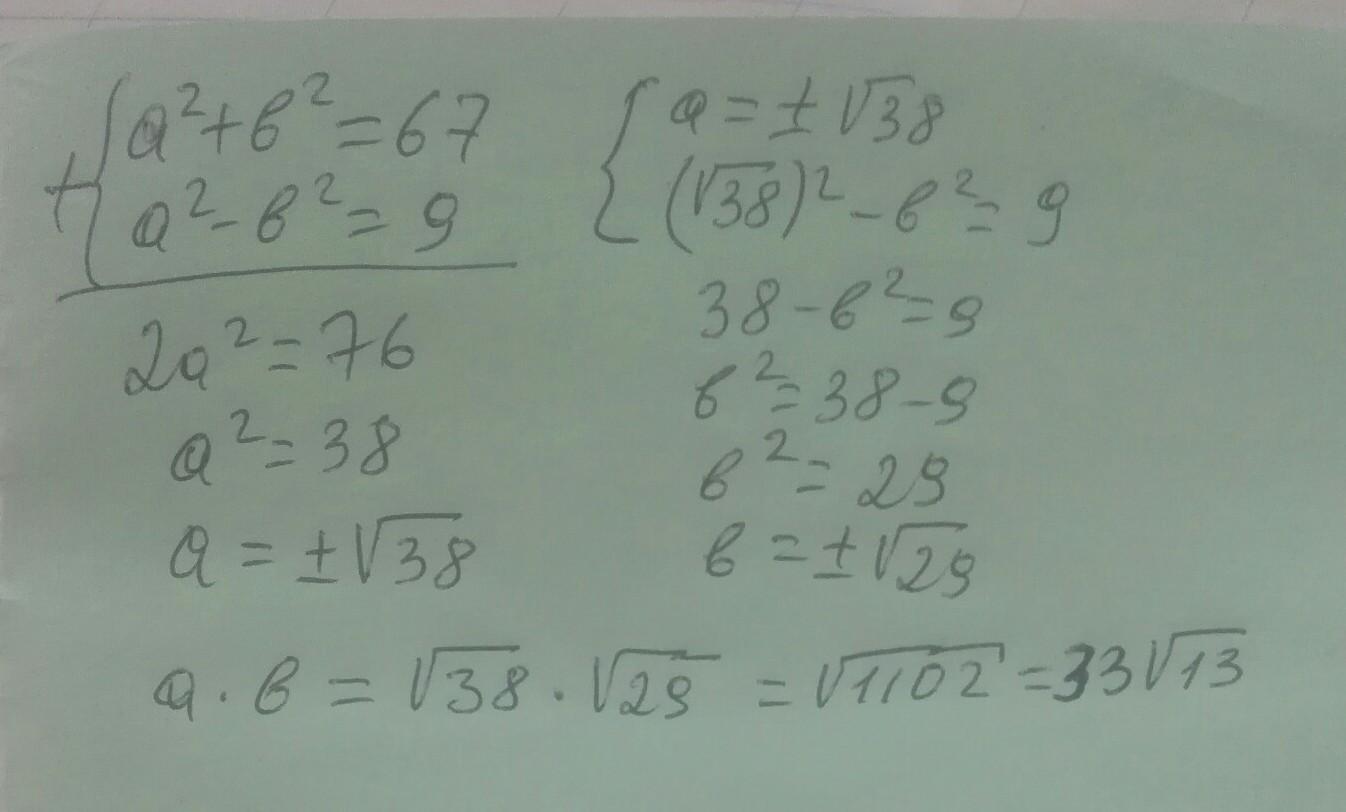 + { a² + в² = 67
a² - в² = 9
2a² = 76
a² = 38
a = ±√38
{ a = ±√38
(√38)² - в² = 9
38 - в² = 9
в² = 38 - 9
в² = 29
в = ±√29
a · в = √38 · √29 = √1102 = 33√13